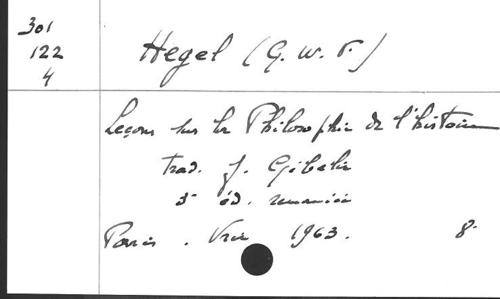 301
122
4
Hegel (G. W. F.)
Leçons sur la Philosophie de l'histoire
trad. J. Gibelin
3e éd. remaniée
Paris. Vrin 1963. 8°